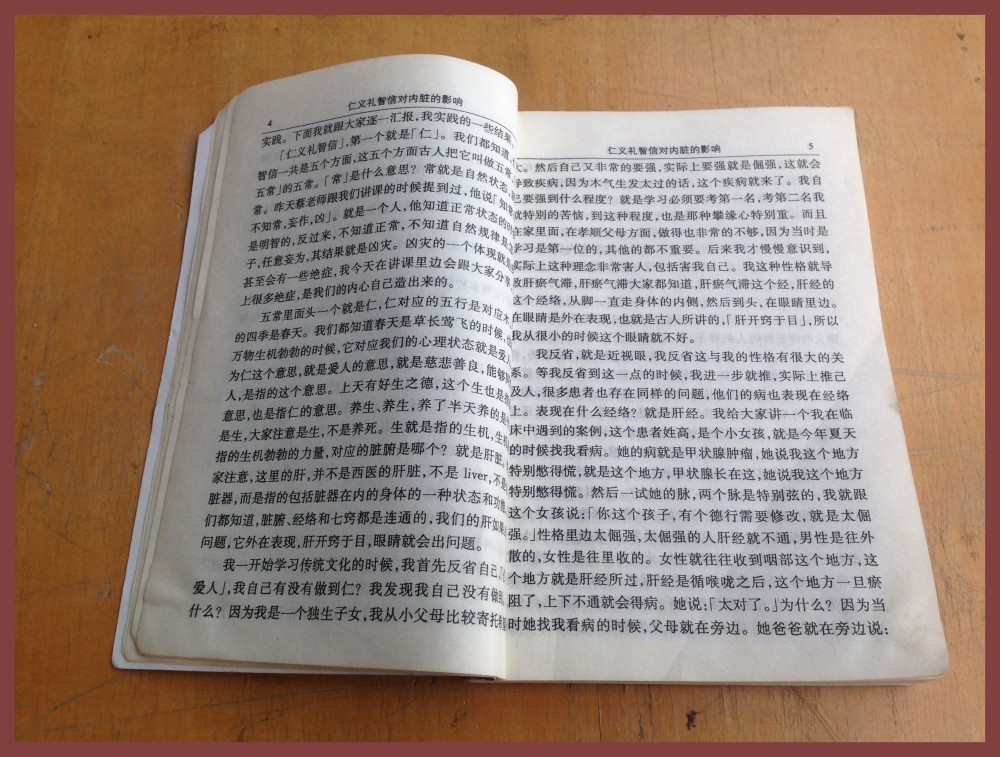 仁义礼智信对内脏的影响
4
实践。下面我就跟大家逐一汇报，我实践的一些结果。
「仁义礼智信」，第一个就是「仁」。我们都知道，
智信一共是五个方面，这五个方面古人把它叫做五常，
五常」的五常。「常」是什么意思？常就是自然状态、
常。昨天蔡老师跟我们讲课的时候提到过，他说「知常
不知常，妄作，凶」。就是一个人，他知道正常状态的时
是明智的，反过来，不知道正常，不知道自然规律是
子，任意妄为，其结果就是凶灾。凶灾的一个体现就是
甚至会有一些绝症，我今天在讲课里边会跟大家分享
上很多绝症，是我们的内心自己造出来的。
五常里面头一个就是仁，仁对应的五行是对应木，
的四季是春天。我们都知道春天是草长莺飞的时候，也
万物生机勃勃的时候，它对应我们的心理状态就是爱人
为仁这个意思，就是爱人的意思，就是慈悲善良，能够
人，是指的这个意思。上天有好生之德，这个生也是指
意思，也是指仁的意思。养生、养生，养了半天养的是
是生，大家注意是生，不是养死。生就是指的生机，生机
指的生机勃勃的力量，对应的脏腑是哪个？就是肝脏。
家注意，这里的肝，并不是西医的肝脏，不是 liver，不是
脏器，而是指的包括脏器在内的身体的一种状态和功能
们都知道，脏腑、经络和七窍都是连通的，我们的肝如果
问题，它外在表现，肝开窍于目，眼睛就会出问题。
我一开始学习传统文化的时候，我首先反省自己，
爱人」，我自己有没有做到仁？我发现我自己没有做到
什么？因为我是一个独生子女，我从小父母比较寄托
仁义礼智信对内脏的影响
5
大。然后自己又非常的要强，实际上要强就是倔强，这就会
导致疾病，因为木气生发太过的话，这个疾病就来了。我自
己要强到什么程度？就是学习必须要考第一名，考第二名我
就特别的苦恼，到这种程度，也是那种攀缘心特别重。而且
在家里面，在孝顺父母方面，做得也非常的不够，因为当时是
学习是第一位的，其他的都不重要。后来我才慢慢意识到，
实际上这种理念非常害人，包括害我自己。我这种性格就导
致肝瘀气滞，肝瘀气滞大家都知道，肝瘀气滞这个经，肝经的
这个经络，从脚一直走身体的内侧，然后到头，在眼睛里边。
在眼睛是外在表现，也就是古人所讲的，「肝开窍于目」，所以
我从很小的时候这个眼睛就不好。
我反省，就是近视眼，我反省这与我的性格有很大的关
系。等我反省到这一点的时候，我进一步就推，实际上推己
及人，很多患者也存在同样的问题，他们的病也表现在经络
上。表现在什么经络？就是肝经。我给大家讲一个我在临
床中遇到的案例，这个患者姓高，是个小女孩，就是今年夏天
的时候找我看病。她的病就是甲状腺肿瘤，她说我这个地方
特别憋得慌，就是这个地方，甲状腺长在这，她说我这个地方
特别憋得慌。然后一试她的脉，两个脉是特别弦的，我就跟
这个女孩说：「你这个孩子，有个德行需要修改，就是太倔
强。」性格里边太倔强，太倔强的人肝经就不通，男性是往外
散的，女性是往里收的。女性就往往收到咽部这个地方，这
个地方就是肝经所过，肝经是循喉咙之后，这个地方一旦瘀
阻了，上下不通就会得病。她说：「太对了。」为什么？因为当
时她找我看病的时候，父母就在旁边。她爸爸就在旁边说：